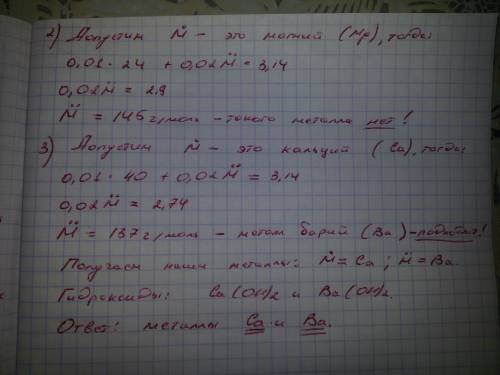 2) Допустим Ṁ - это магний (Mg), тогда:
0,01 · 24 + 0,02M̈ = 3,14
0,02M̈ = 2,9
M̈ = 145 г/моль - такого металла нет!
3) Допустим Ṁ - это кальций (Ca), тогда
0,01 · 40 + 0,02M̈ = 3,14
0,02M̈ = 2,74
M̈ = 137 г/моль - металл барий (Ba) - подходит!
Получаем наши металлы: Ṁ = Ca ; M̈ = Ba
Гидроксиды: Ca(OH)2 и Ba(OH)2.
Ответ: металлы Ca и Ba.